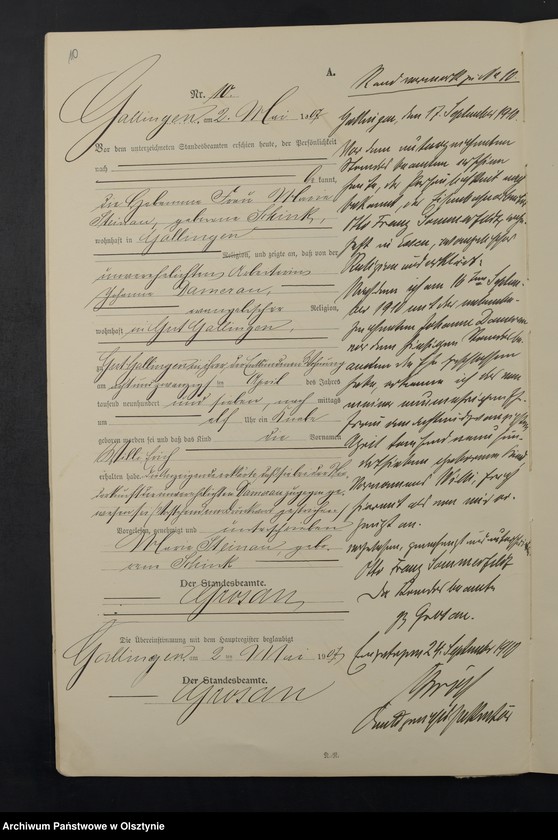 110
A.
Nr. 10.
Gallingen, am 2. Mai 1907
Vor dem unterzeichneten Standesbeamten erschien heute, der Persönlichkeit
nach
kannt,
die Hebamme Frau Marie
Steinau, geborene Schink,
wohnhaft in Gallingen
Religion, und zeigte an, daß von der
unverehelichten Arbeiterin
Johanne Damerau,
evangelischer Religion,
wohnhaft in Gut Gallingen,
zu Gut Gallingen in ihrer Wohnung
am achtundzwanzigsten April des Jahres
tausend neunhundert und sieben, nachmittags
um elf Uhr ein Knabe
geboren worden sei und daß das Kind die Vornamen
Willi Erich
erhalten habe.
der unverehelichten Damerau zugegen ge-
wesen sei.
Vorgelesen, genehmigt und unterschrieben
Marie Steinau gebo-
rene Schink
Der Standesbeamte.
Grosan
Die Übereinstimmung mit dem Hauptregister beglaubigt
Gallingen, am 2ten Mai 1907
Der Standesbeamte.
Grosan
Randvermerk zu Nr 10
Gallingen, den 17. September 1910
Vor dem unterzeichneten
Standesbeamten erschien
heute, der Persönlichkeit nach
bekannt, der
Otto Franz Sommerfeldt,
evangelischer
Religion und erklärt:
Nachdem ich am 16ten Septem-
ber 1910 mit der nebenbe-
zeichneten Johanne Damerau
vor dem hiesigen Standesbe-
amten die Ehe geschlossen
habe erkenne ich das von
meiner nunmehrigen Ehe-
frau am achtundzwanzigsten
April tausend neunhun-
dertsieben geborene
Vornamens Willi Erich
hiermit als von mir er-
zeugt an.
Vorgelesen, genehmigt und unterschrieben
Otto Franz Sommerfeldt
Der Standesbeamte
gz Grosan.
24. September 1910
R.-R.
Archiwum Państwowe w Olsztynie